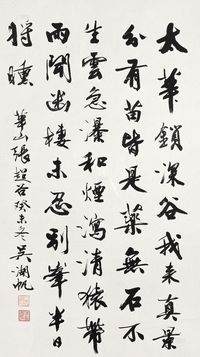 太華鎖深谷我来真景
分有苗皆是藥無石不
生雲急瀑和煙瀉清猿帶
雨聞幽樓未忍別峯半日
将曛
華山張超谷癸未冬吳湖帆